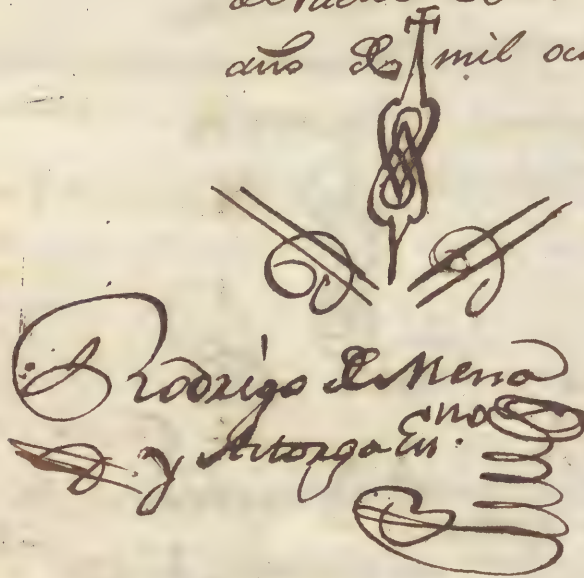 año de mil
Rodrigo de Mena
y Astorga Esno.